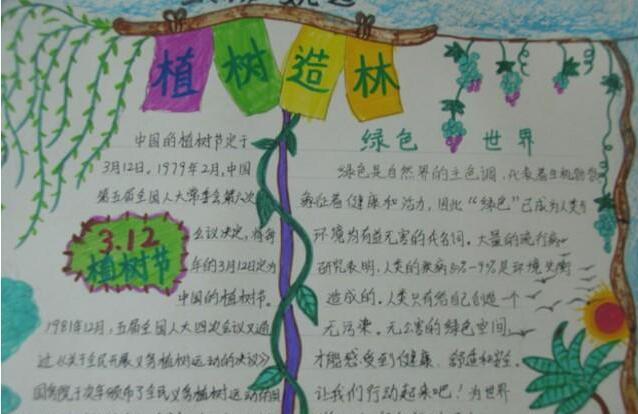 植树造林
中国的植树节定于
3月12日。1979年2月,中国
第五届全国人大常委会第六次
会议决定,将每
年的3月12日定为
中国的植树节。
3.12
植树节
1981年12月,五届全国人大四次会议又通
过《关于全民开展义务植树运动的决议》
国务院于次年颁布了全民义务植树运动的
绿色世界
绿色是自然界的主色调,代表着生机勃勃
象征着健康和活力,因此"绿色"已成为人类与
环境为有益无害的代名词。大量的流行病
研究表明,人类的疾病
是环境失衡
造成的。人类只有给自己创造一个
无污染。无公害的绿色空间,
才能感受到健康、舒适和安全。
让我们行动起来吧!为世界